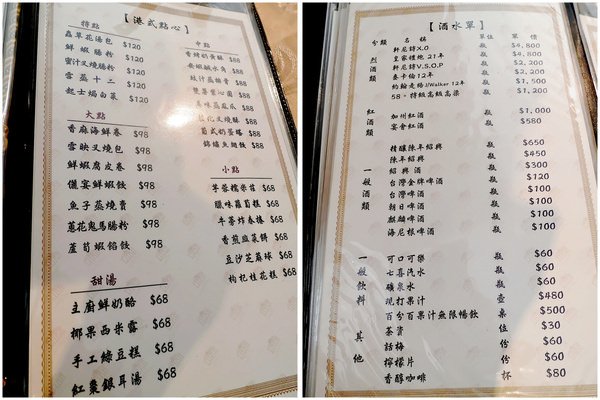 【港式點心】
特點
蟲草花湯包 $120
鮮蝦腸粉 $120
蜜汁叉燒腸粉 $120
$120
起士焗白菜 $120
大點
香麻海鮮卷 $98
雪映叉燒包 $98
鮮蝦腐皮卷 $98
儷宴鮮蝦餃 $98
魚子蒸燒賣 $98
蔥花鬼馬腸粉 $98
蘆筍蝦餡餃 $98
甜湯
主廚鮮奶酪 $68
椰果西米露 $68
手工綠豆糕 $68
紅棗銀耳湯 $68
中點
$88
$88
$88
$88
$88
叉燒酥 $88
葡式奶蛋塔 $88
錦繡魚翅餃 $88
小點
芋蓉糯米滋 $68
臘味蘿蔔糕 $68
牛蒡炸春捲 $68
香煎韭菜餅 $68
豆沙芝麻球 $68
枸杞桂花糕 $68
【酒水單】
分類 名稱 單位 單價
烈酒類
軒尼詩X.O 瓶 $4,800
皇家禮炮 21年 瓶 $4,800
軒尼詩V.S.O.P 瓶 $2,200
麥卡倫12年 瓶 $2,200
約翰走路J/Walker 12年 瓶 $1,500
58°特級高級高粱 瓶 $1,200
紅酒類
加州紅酒 瓶 $1,000
宴會紅酒 瓶 $580
一般酒類
精釀陳年紹興 瓶 $650
陳年紹興 瓶 $450
紹興酒 瓶 $300
台灣金牌啤酒 瓶 $120
台灣啤酒 瓶 $100
朝日啤酒 瓶 $100
麒麟啤酒 瓶 $100
海尼根啤酒 瓶 $100
一般飲料
可口可樂 瓶 $60
七喜汽水 瓶 $60
礦泉水 瓶 $60
現打果汁 壺 $480
百分百果汁無限暢飲 桌 $500
其他
茶資 位 $30
話梅 份 $60
檸檬片 份 $60
香醇咖啡 杯 $80